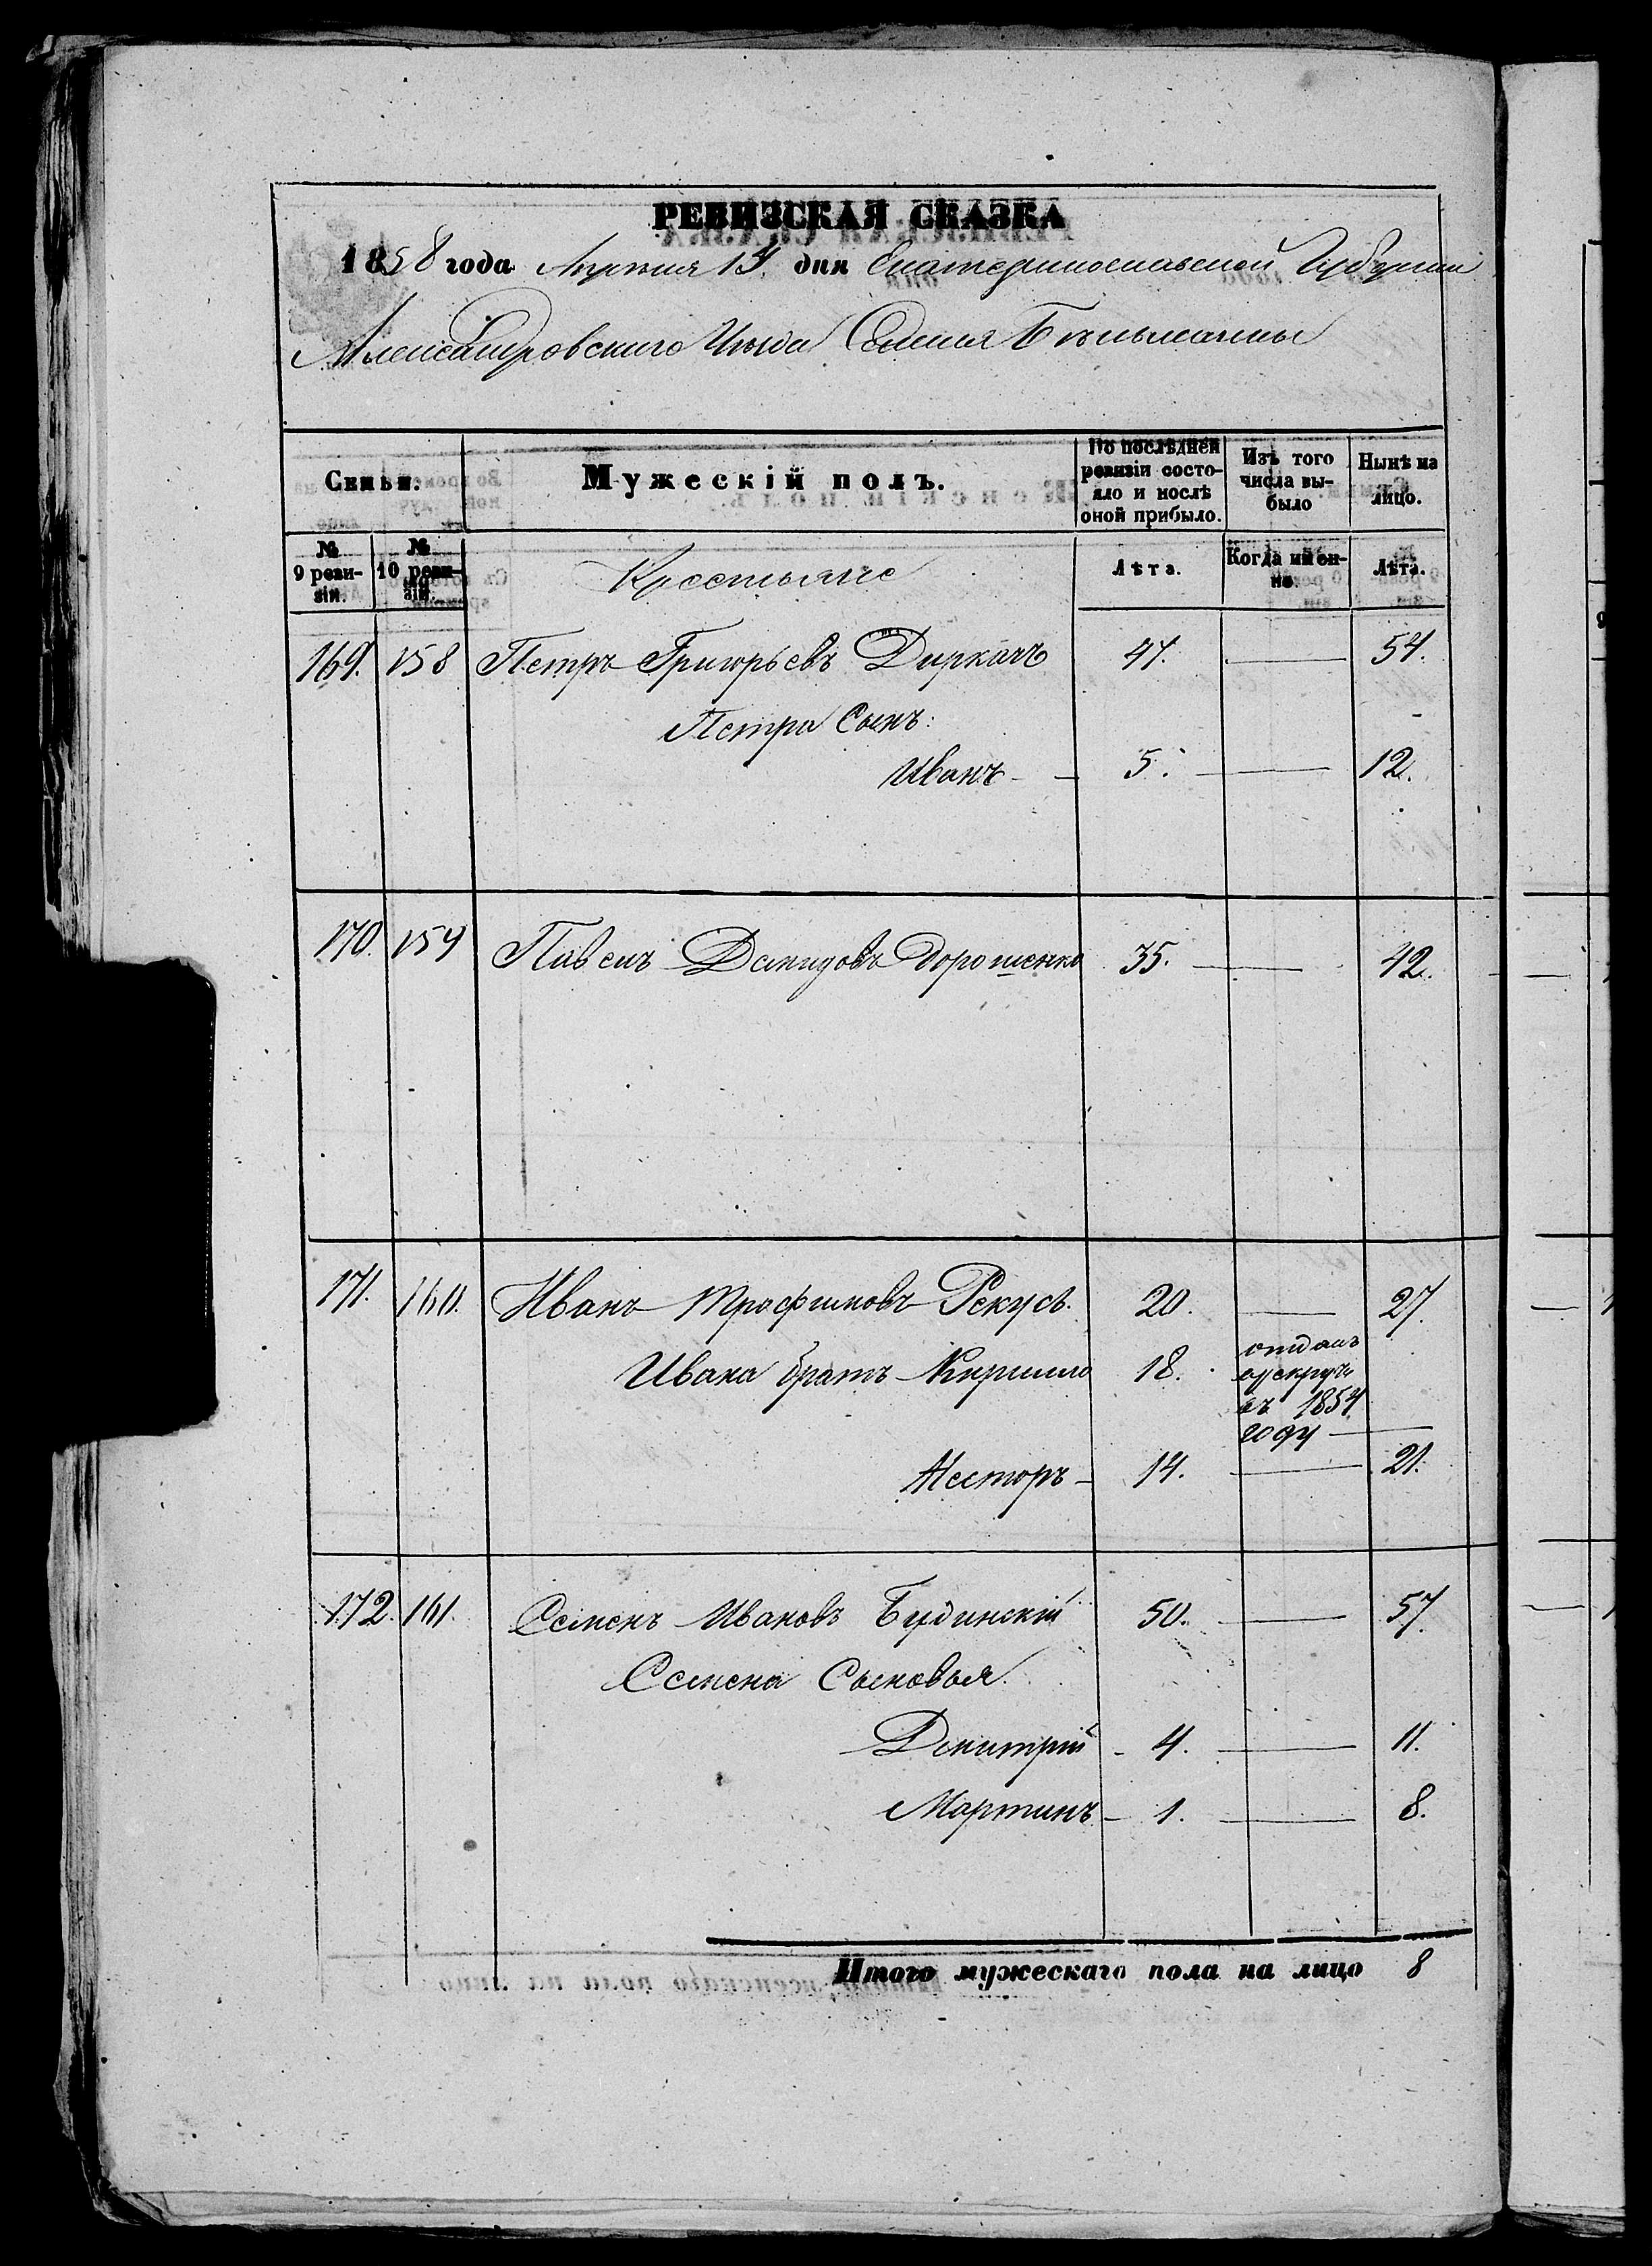 РЕВИЗСКАЯ СКАЗКА
1858 года Апреля 14. дня Екатеринославской Губернии
Александровского Уезда Селения Бельманки
Семьи:
Мужескій полъ.
По последней ревизіи состо-яло и после оной прибыло.
Изъ того числа вы-было
Нынѣ на лицо.
№ 9 реви-зіи.
№ 10 реви-зіи.
Крестьяне
Лѣта.
Когда имен-но.
Лѣта.
169. 158 Петръ Григорьевъ Диркачъ 47. — 54.
Петра Сынъ:
Иванъ - - 5. — 12.
170. 159 Павелъ Демидовъ Дорошенко 35. — 42.
171. 160. Иванъ Трофимовъ Рекусъ. 20. — 27.
Ивана братъ Кирилло 18. отданъ
врекруты
въ 1854
году —
Несторъ - 14. — 21.
172. 161. Семенъ Ивановъ Будинскій 50. — 57.
Семена Сыновья.
Дмитрій - 4. — 11.
Мартинъ - 1. — 8.
Итого мужескаго пола на лицо 8